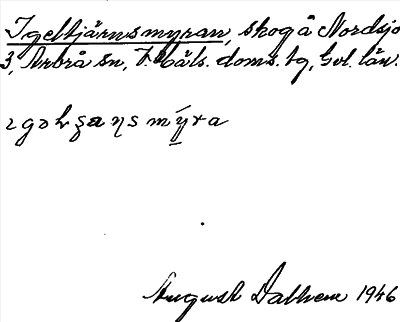 Igeltjärnsmyran, skog å Nordsjö
3, Arbrå sn, V. Häls. doms. tg, Gvl. län.
August Dalhem 1946